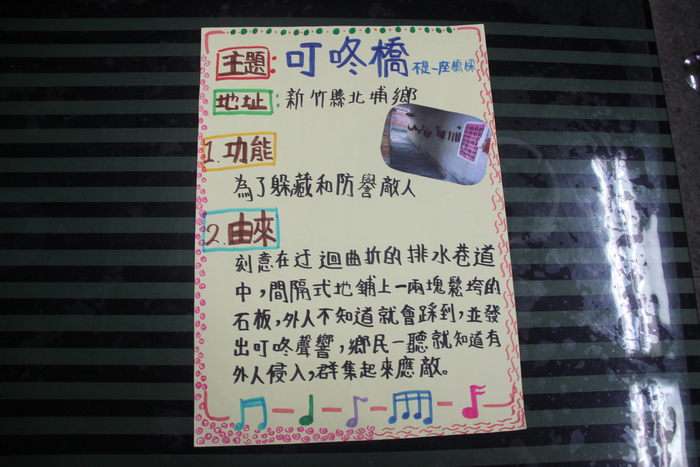 主題：叮咚橋 不是一座橋樑
地址：新竹縣北埔鄉
1.功能
為了躲藏和防譽敵人
2.由來
刻意在迂迴曲折的排水巷道
中，間隔式地鋪上一兩塊鬆垮的
石板，外人不知道就會踩到，並發
出叮咚聲響，鄉民一聽就知道有
外人侵入，群集起來應敵。